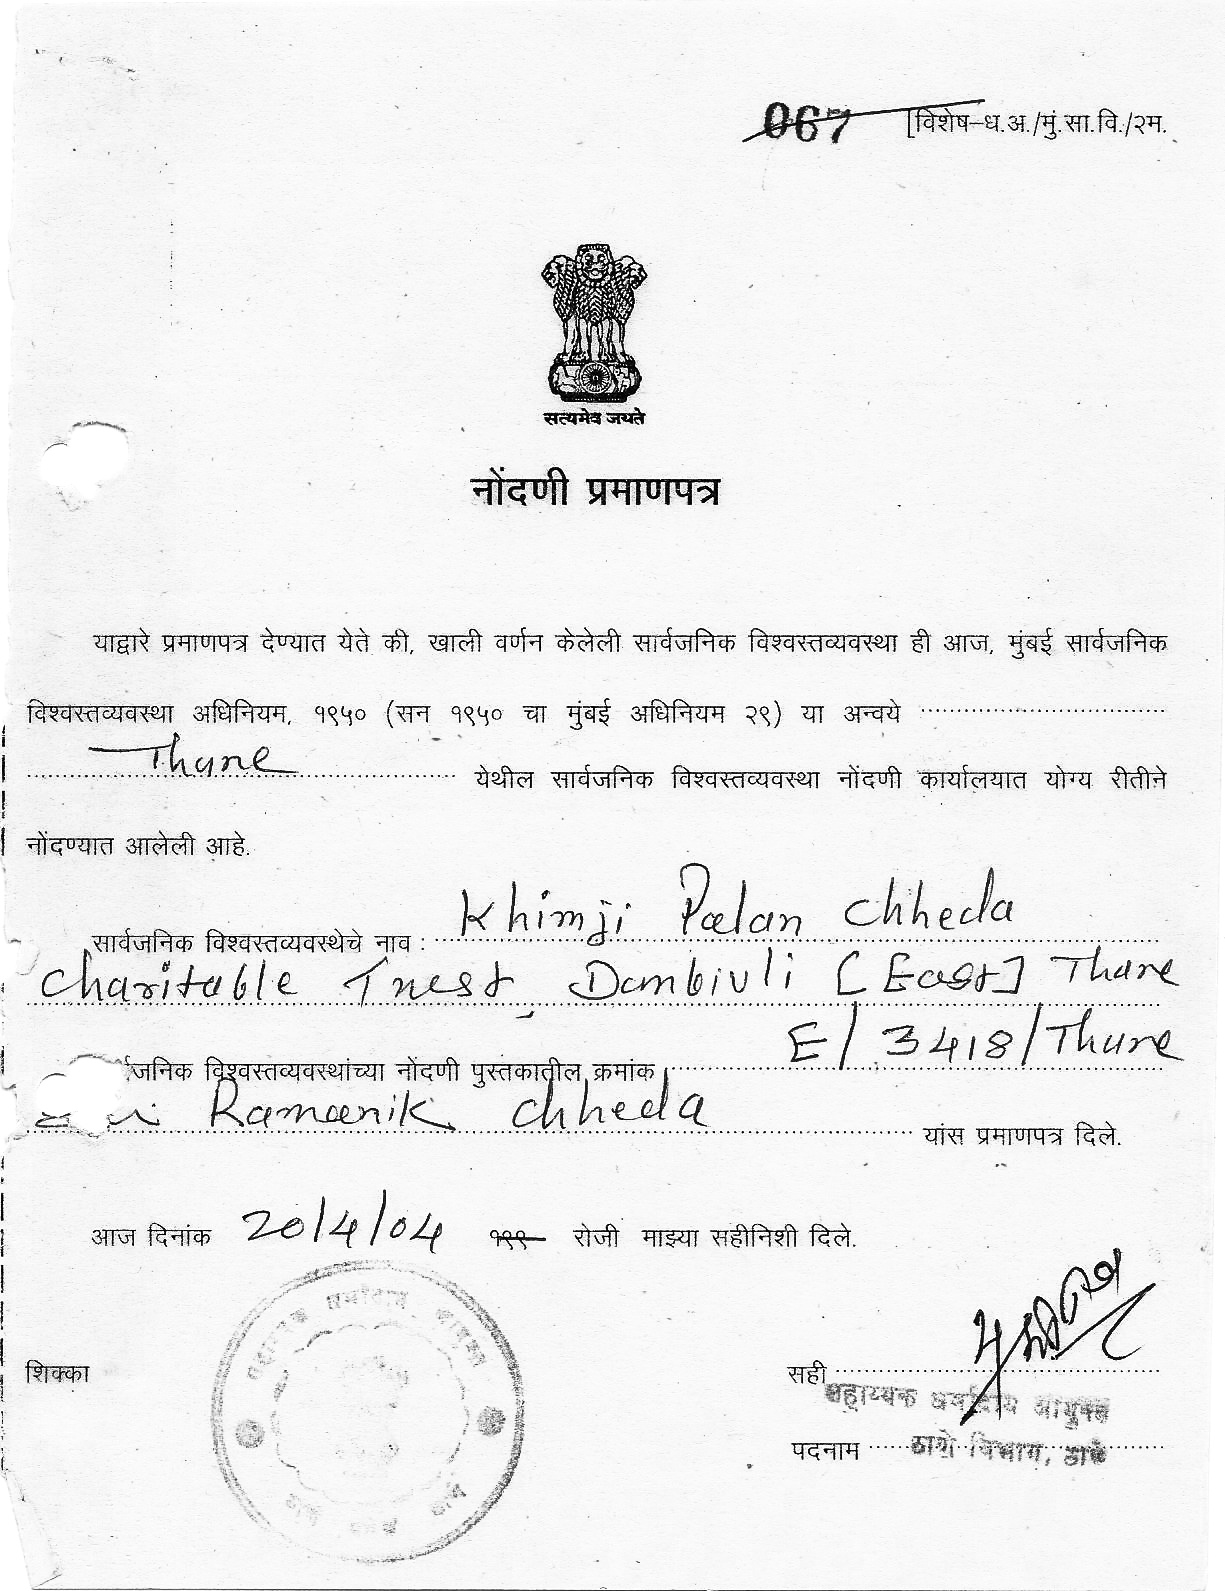 067 [विशेष–ध.अ./मुं.सा.वि./२म.
सत्यमेव जयते
नोंदणी प्रमाणपत्र
याद्वारे प्रमाणपत्र देण्यात येते की, खाली वर्णन केलेली सार्वजनिक विश्वस्तव्यवस्था ही आज, मुंबई सार्वजनिक
विश्वस्तव्यवस्था अधिनियम, १९५० (सन १९५० चा मुंबई अधिनियम २९) या अन्वये
Thane येथील सार्वजनिक विश्वस्तव्यवस्था नोंदणी कार्यालयात योग्य रीतीने
नोंदण्यात आलेली आहे.
सार्वजनिक विश्वस्तव्यवस्थेचे नाव : Khimji Palan Chheda
Charitable Trust, Dombivli [East] Thane
र्वजनिक विश्वस्तव्यवस्थांच्या नोंदणी पुस्तकातील क्रमांक E/3418/Thane
Ramanik Chheda यांस प्रमाणपत्र दिले.
आज दिनांक 20/4/04 १९९ रोजी माझ्या सहीनिशी दिले.
शिक्का
सही
सहाय्यक धर्मादाय आयुक्त
पदनाम ठाणे विभाग, ठाणे